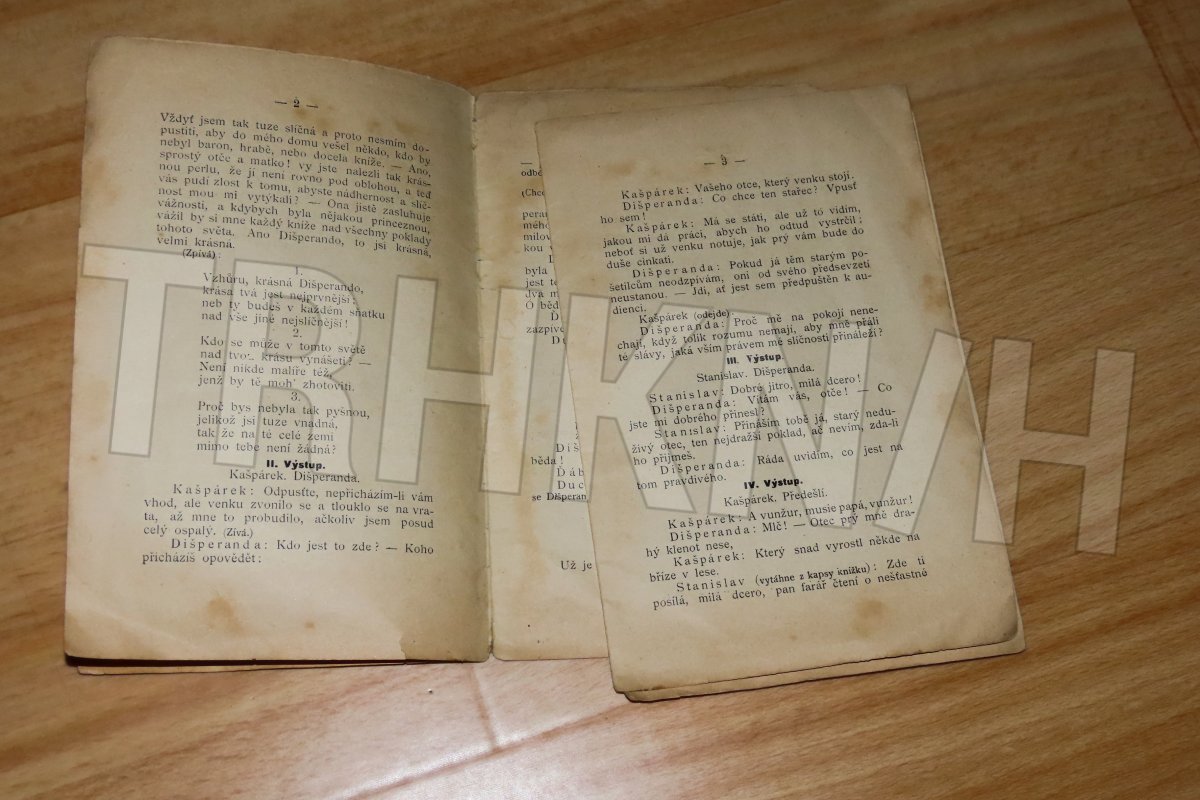 — 2 —
Vždyť jsem tak tuze slíčná a proto nesmím do-
pustiti, aby do mého domu vešel někdo, kdo by
nebyl baron, hrabě, nebo docela kníže. — Ano,
sprostý otče a matko! vy jste nalezli tak krás-
nou perlu, že jí není rovno pod oblohou, a teď
vás pudí zlost k tomu, abyste nádhernost a slič-
nost mou mi vytýkali? — Ona jistě zasluhuje
vážnosti, a kdybych byla nějakou princeznou,
vážil by si mne každý kníže nad všechny poklady
tohoto světa. Ano Dišperando, to jsi krásná,
velmi krásná.
(Zpívá):
1.
Vzhůru, krásná Dišperando,
krása tvá jest nejprvnější
neb ty budeš v každém sňatku
nad vše jiné nejslíčnější!
2.
Kdo se může v tomto světě
nad tvou krásu vynášeti? —
Není nikde malíře též,
jenž by tě moh' zhotoviti.
3.
Proč bys nebyla tak pyšnou,
jelikož jsi tuze vnadná,
tak že na té celé zemi
mimo tebe není žádná?
II. Výstup.
Kašpárek. Dišperanda.
Kašpárek: Odpusťte, nepřicházím-li vám
vhod, ale venku zvonilo se a tlouklo se na vra-
ta, až mne to probudilo, ačkoliv jsem posud
celý ospalý. (Zívá.)
Dišperanda: Kdo jest to zde? — Koho
přicházíš opovědět:
—
odbě
(Chce
peran
mého
milov
kou v
D
byla
jest te
dva m
Ó běd
D
zazpíve
Du
Ž
Diš
běda!
Ďáb
Duc
se Dišperan
Už je
— 3 —
Kašpárek: Vašeho otce, který venku stojí.
Dišperanda: Co chce ten stařec? Vpusť
ho sem!
Kašpárek: Má se státi, ale už to vidím,
jakou mi dá práci, abych ho odtud vystrčil:
neboť si už venku notuje, jak prý vám bude do
duše cinkati.
Dišperanda: Pokud já těm starým po-
šetilcům neodzpívám, oni od svého předsevzetí
neustanou. — Jdi, ať jest sem předpuštěn k au-
dienci:
Kašpárek (odejde)
Dišperanda: Proč mě na pokoji nene-
chají, když tolik rozumu nemají, aby mně přáli
té slávy, jaká vším právem mé sličnosti přináleží?
III. Výstup.
Stanislav. Dišperanda.
Stanislav: Dobré jitro, milá dcero!
Dišperanda: Vítám vás, otče! — Co
jste mi dobrého přinesl?
Stanislav: Přináším tobě já, starý nedu-
živý otec, ten nejdražší poklad, ač nevím, zda-li
ho přijmeš.
Dišperanda: Ráda uvidím, co jest na
tom pravdivého.
IV. Výstup.
Kašpárek. Předešlí.
Kašpárek: A vunžur, musie papá, vunžur!
Dišperanda: Mlč! — Otec prý mně dra-
hý klenot nese,
Kašpárek: Který snad vyrostl někde na
bříze v lese.
Stanislav (vytáhne z kapsy knížku): Zde ti
posílá, milá dcero, pan farář čtení o nešťastné
TRHKNIH